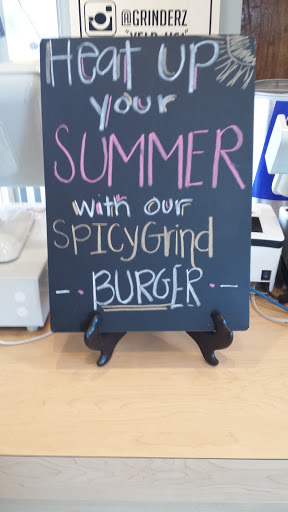 @GRINDERZ
"YELP US!"
HEAT UP
your
SUMMER
with our
SPICYGrind
- BURGER -